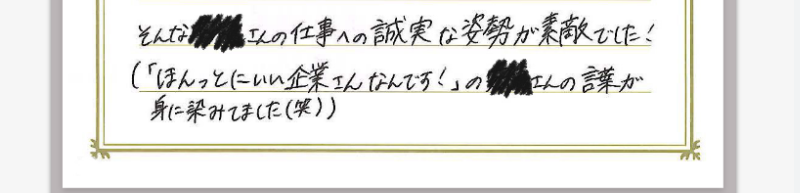 そんな さんの仕事への誠実な姿勢が素敵でした!
(「ほんっとにいい企業さんなんです!」の さんの言葉が
身に染みてました(笑))